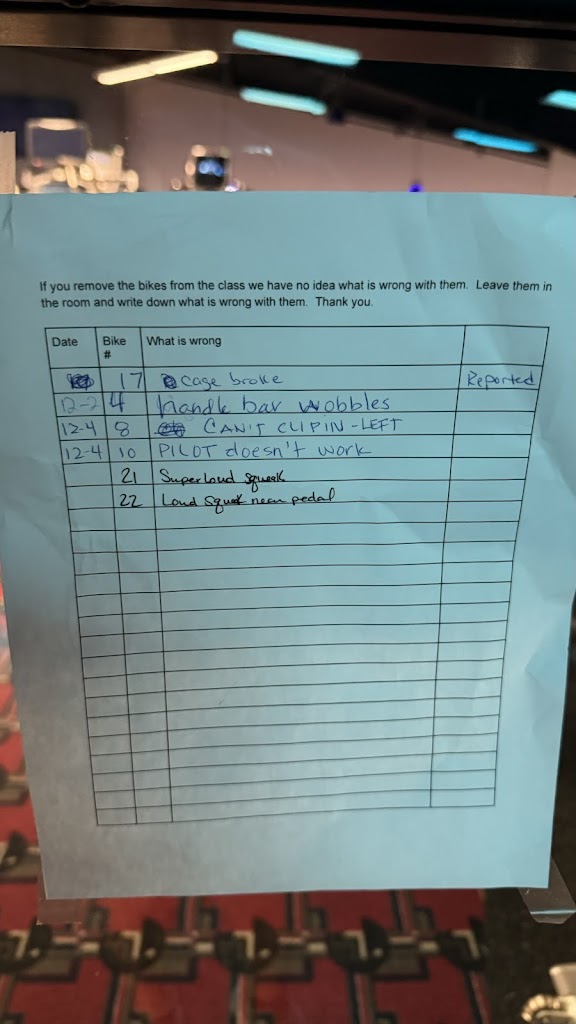 If you remove the bikes from the class we have no idea what is wrong with them. Leave them in
the room and write down what is wrong with them. Thank you.
Date Bike # What is wrong
17 cage broke Reported
12-2 4 handle bar wobbles
12-4 8 CAN'T CLIP IN - LEFT
12-4 10 PILOT doesn't work
21 Super loud squeak
22 Loud squeak near pedal